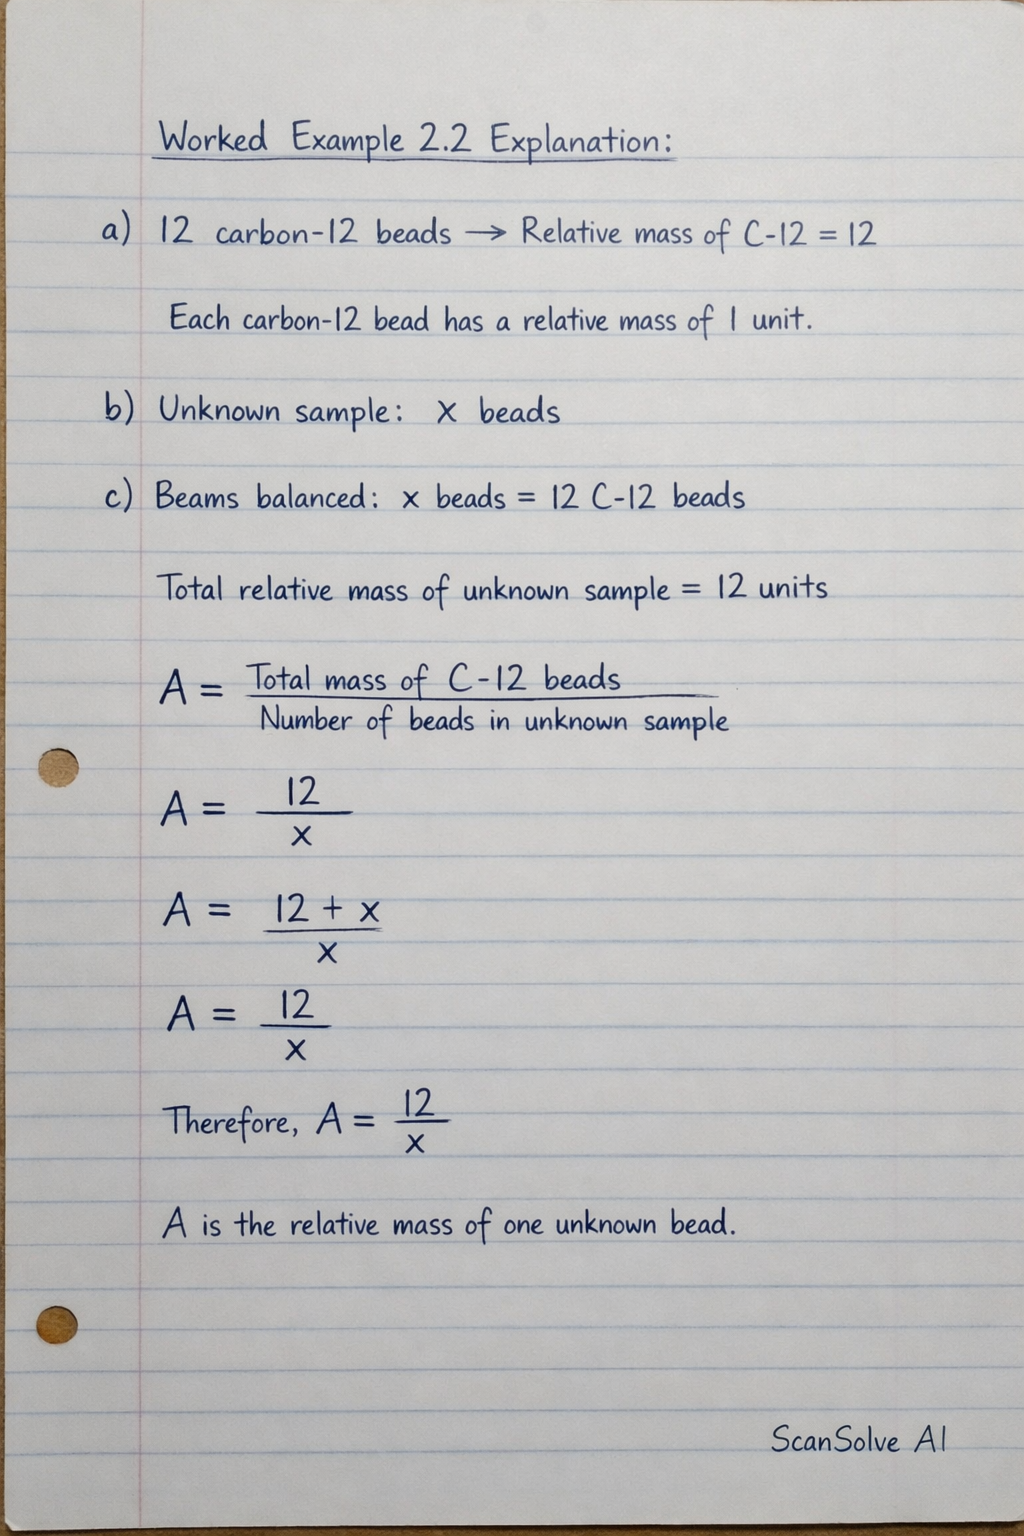 Worked Example 2.2 Explanation:
a) 12 carbon-12 beads → Relative mass of C-12 = 12
Each carbon-12 bead has a relative mass of 1 unit.
b) Unknown sample: x beads
c) Beams balanced: x beads = 12 C-12 beads
Total relative mass of unknown sample = 12 units
A = Total mass of C-12 beads
Number of beads in unknown sample
A = 12
x
A = 12 + x
x
A = 12
x
Therefore, A = 12
x
A is the relative mass of one unknown bead.
ScanSolve AI